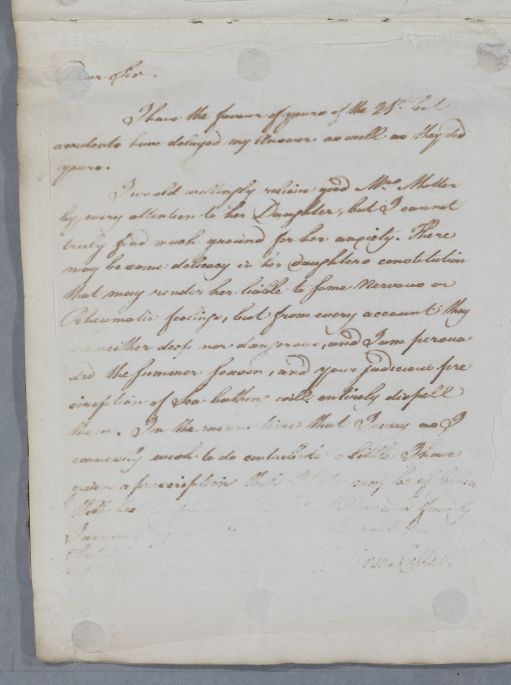 Dear Sir.
I have the favour of yours of the 21st. but
accidents have delayed my Answer as well as they did
yours.
I would willingly relieve good Mrs. Moller
by every attention to her Daughter, but I cannot
truly find much ground for her anxiety. There
may be some delicacy in her daughters constitution
that may render her liable to some Nervous or
Rheumatic feelings, but from every account they
neither deep nor dangerous, and I am persua
ded the Summer Season, and your judicious pre
scription of Sea bathing will entirely dispell
them. In the mean time that I may as I
earnestly wish to do contribute a little I have
given a prescription that may be of Service
With best and family
I am